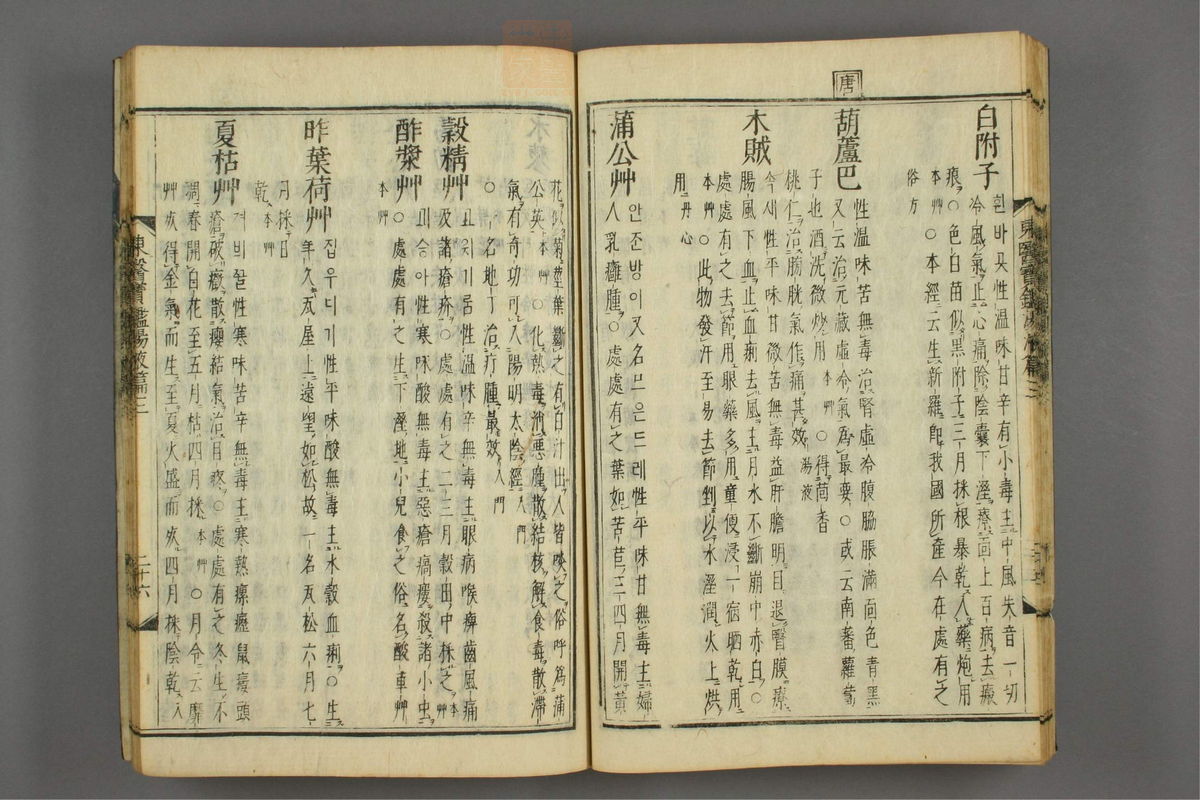 唐
白附子
흰바곳性温味甘辛有小毒主中風失音一切
冷風氣止心痛除陰囊下溼痒面上百病去瘢
痕○色白苗似黒附子三月採根暴乾入藥炮用
本艸○本經云生新羅卽我國所産今在處有之
俗方
葫蘆巴
性温味苦無毒治腎虛冷腹脇脹滿面色青黒
又云治元藏虛冷氣爲最要○或云南蕃蘿蔔
子也酒洗微炒用本艸○得茴香
桃仁治膀胱氣作痛甚效湯液
木賊
속새性平味甘微苦無毒益肝膽明目退瞖膜療
腸風下血止血痢去風主月水不斷崩中赤白○
處處有之去節用眼藥多用童便浸一宿晒乾用
本艸○此物發汗至易去節剉以水溼潤火上烘
用丹心
蒲公艸
안잔방이又名므은드레性平味甘無毒主婦
人乳癰腫○處處有之葉如苦苣三四月開黃
花似菊莖葉斷之有白汁出人皆啖之俗呼爲蒲
公英本艸○化熱毒消惡腫散結核解食毒散滯
氣有奇功可入陽明太陰經入門
○一名地丁治疔腫最效入門
穀精艸
고윗가름性温味辛無毒主眼病喉痺齒風痛
及諸瘡疥○處處有之二三月穀田中採之本艸
酢漿艸
괴승아性寒味酸無毒主惡瘡瘑瘻殺諸小虫
○處處有之生下溼地小兒食之俗名酸車艸
本艸
昨葉荷艸
집우디기性平味酸無毒主水穀血痢○生
年久瓦屋上遠望如松故一名瓦松六月七
月採日
乾本艸
夏枯艸
져비꿀性寒味苦辛無毒主寒熱瘰癧鼠瘻頭
瘡破癥散癭結氣治目疼○處處有之冬生不
凋春開白花至五月枯四月採本艸○月令云靡
艸死得金氣而生至夏火盛而死四月採陰乾入
東醫寶鑑湯液篇三
二十六
東醫寶鑑湯液篇三